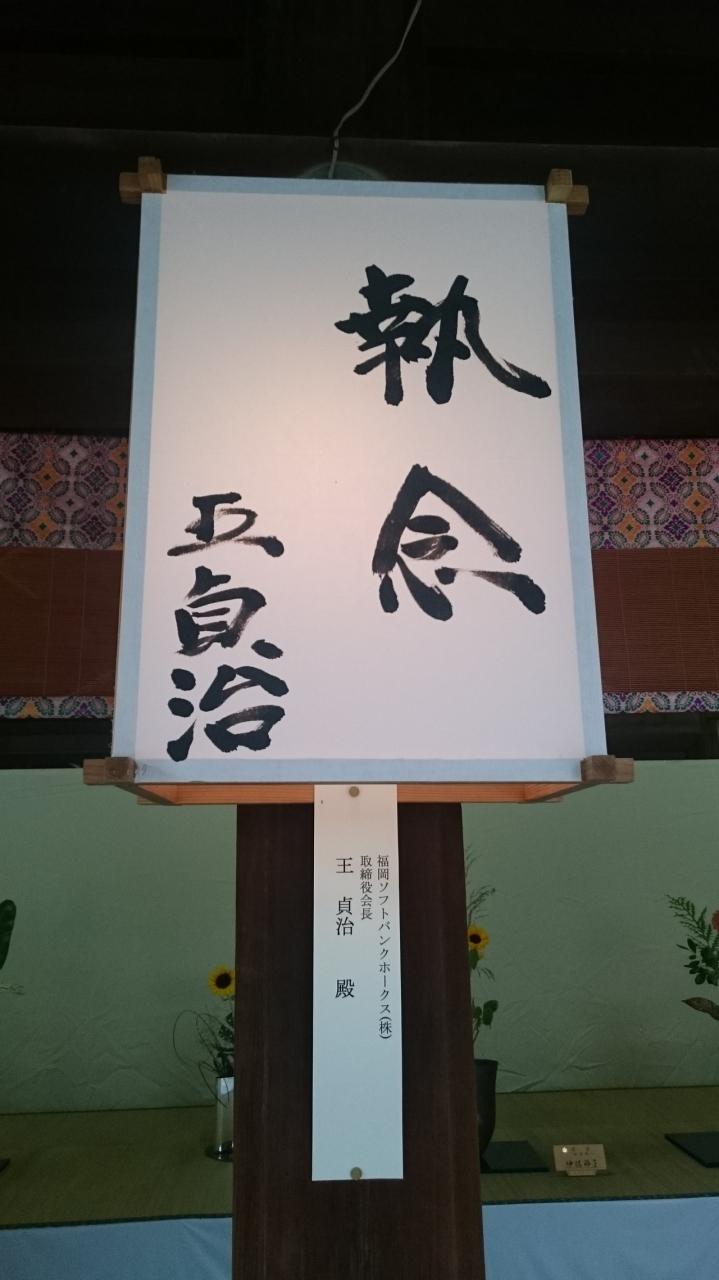 執念
王貞治
福岡ソフトバンクホークス(株)
取締役会長
王 貞治 殿